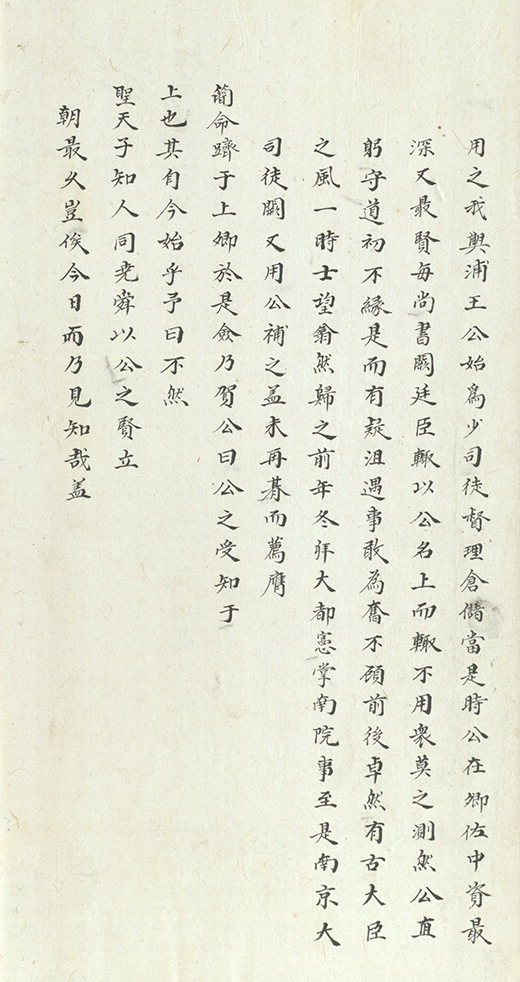 用之我輿浦王公始爲少司徒督理倉儲當是時公在卿佐中資最
深又最賢每尚書闕廷臣輒以公名上而輒不用衆莫之測然公直
躬守道初不緣是而有疑沮遇事敢為奮不顧前後卓然有古大臣
之風一時士望翕然歸之前年冬拜大都憲掌南院事至是南京大
司徒闕又用公補之盖未再朞而薦膺
簡命躋于上卿於是僉乃賀公曰公之受知于
上也其自今始乎予曰不然
聖天子知人同堯舜以公之賢立
朝最久豈俟今日而乃見知哉盖